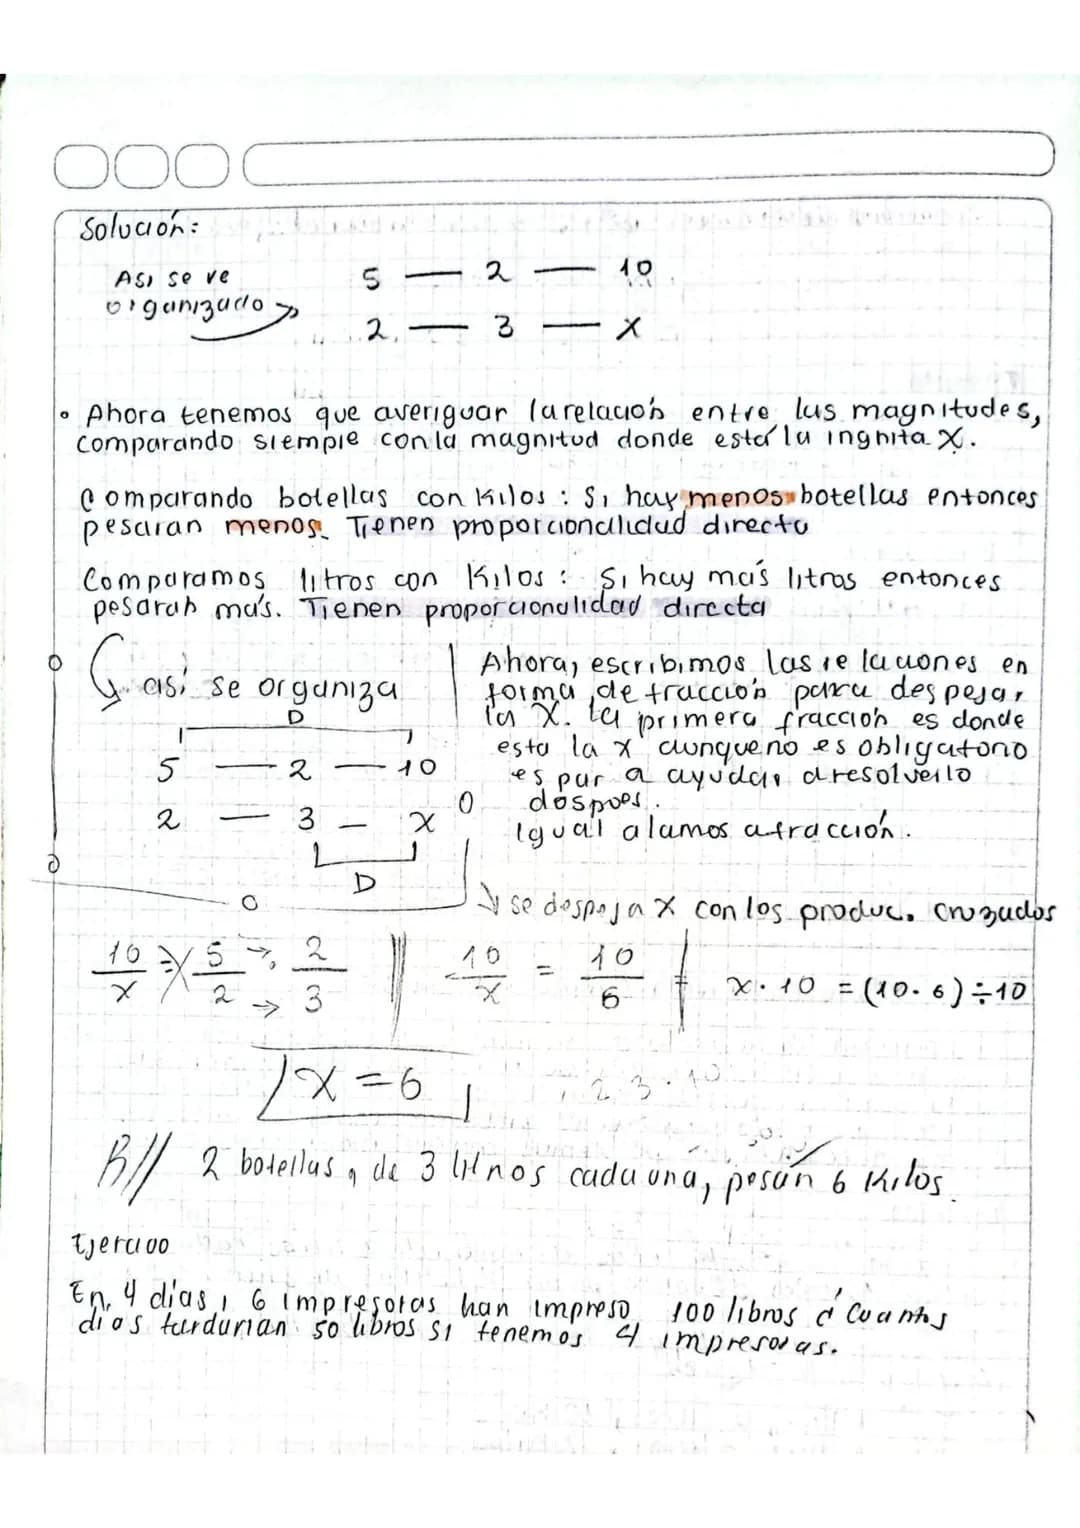 Solución:
Asi se ve 5 — 2 — 10
organizado → 2 — 3 — X
• Ahora tenemos que averiguar la relación entre las magnitudes,
comparando siempre con la magnitud donde está la ingnita X.
Comparando botellas con Kilos: Si hay menos botellas entonces
pesaran menos. Tienen proporcionalidad directa
Comparamos litros con Kilos: Si hay más litros entonces
pesarán más. Tienen proporcionalidad directa
así se organiza
D
5 — 2 — 10
2 — 3 — X
D
Ahora, escribimos las relaciones en
forma de fracción para despejar
la X. La primera fracción es donde
esta la x aunque no es obligatorio
es par a ayudar a resolverlo
dospoes.
Igual alamos a fracción.
→ se despeja X con los produc. cruzados
10/x = 5/2 → 2/3 || 10/x = 10/6 x · 10 = (10 · 6) ÷ 10
X = 6
2 3 · 10
R// 2 botellas, de 3 litros cada una, pesan 6 Kilos.
Ejercicio
En 4 días, 6 impresoras han impreso 100 libros ¿Cuantos
dias tardarian 50 libros si tenemos 4 impresoras.